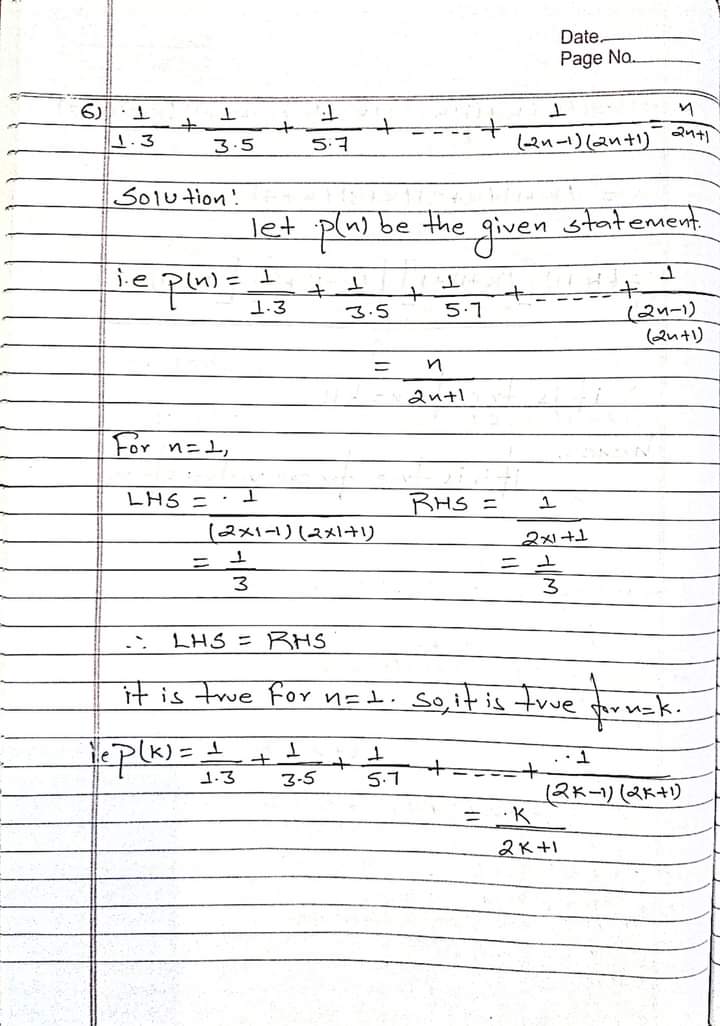 Date.
Page No.
6) 1/1.3 + 1/3.5 + 1/5.7 + ---- + 1/(2n-1)(2n+1) = n/2n+1
Solution:
let p(n) be the given statement.
i.e p(n) = 1/1.3 + 1/3.5 + 1/5.7 + ----- + 1/(2n-1)(2n+1)
= n/2n+1
For n=1,
LHS = 1/(2×1-1)(2×1+1) RHS = 1/2×1+1
= 1/3 = 1/3
∴ LHS = RHS
it is true for n=1. so, it is true for n=k.
i.e p(k) = 1/1.3 + 1/3.5 + 1/5.7 + ---- + 1/(2k-1)(2k+1)
= k/2k+1